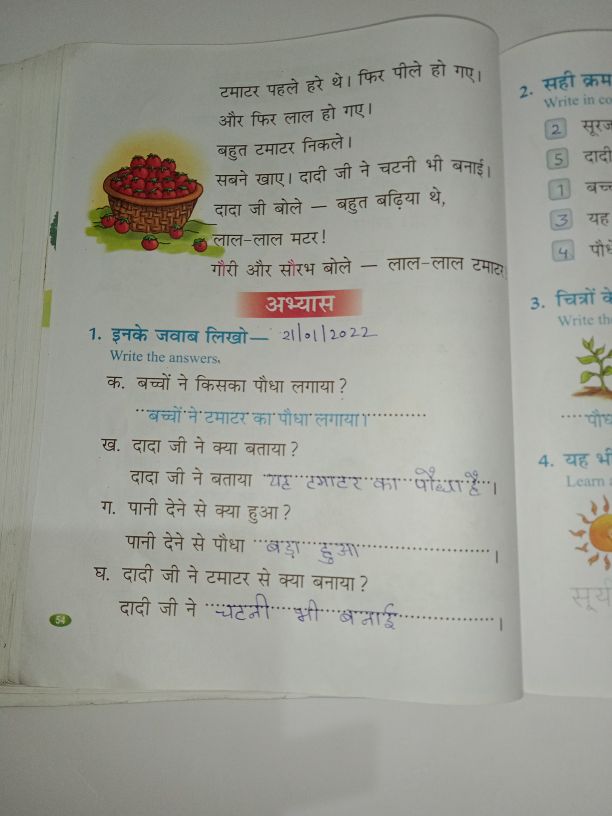 टमाटर पहले हरे थे। फिर पीले हो गए।
और फिर लाल हो गए।
बहुत टमाटर निकले।
सबने खाए। दादी जी ने चटनी भी बनाई।
दादा जी बोले — बहुत बढ़िया थे,
लाल-लाल मटर!
गौरी और सौरभ बोले — लाल-लाल टमाटर
अभ्यास
1. इनके जवाब लिखो— 21/01/2022
Write the answers.
क. बच्चों ने किसका पौधा लगाया?
बच्चों ने टमाटर का पौधा लगाया।
ख. दादा जी ने क्या बताया?
दादा जी ने बताया यह टमाटर का पौधा है।
ग. पानी देने से क्या हुआ?
पानी देने से पौधा बड़ा हुआ।
घ. दादी जी ने टमाटर से क्या बनाया?
दादी जी ने चटनी भी बनाई।
54
2. सही क्रम
Write in co
2 सूरज
5 दादी
1 बच्
3 यह
4 पौध
3. चित्रों के
Write th
पौध
4. यह भी
Learn
सूर्य